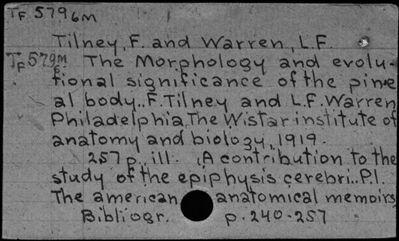 TF 5796m
Tilney, F. and Warren, L.F.
TF 579m The Morphology and evolu-
p. tional significance of the pine
al body.. F. Tilney and L.F. Warren
Philadelphia, The Wistar institute of
anatomy and biology, 1919.
257 p. ill. (A contribution to the
study of the epiphysis cerebri.. P.I.
The american anatomical memoirs
Bibliogr. p. 240-257